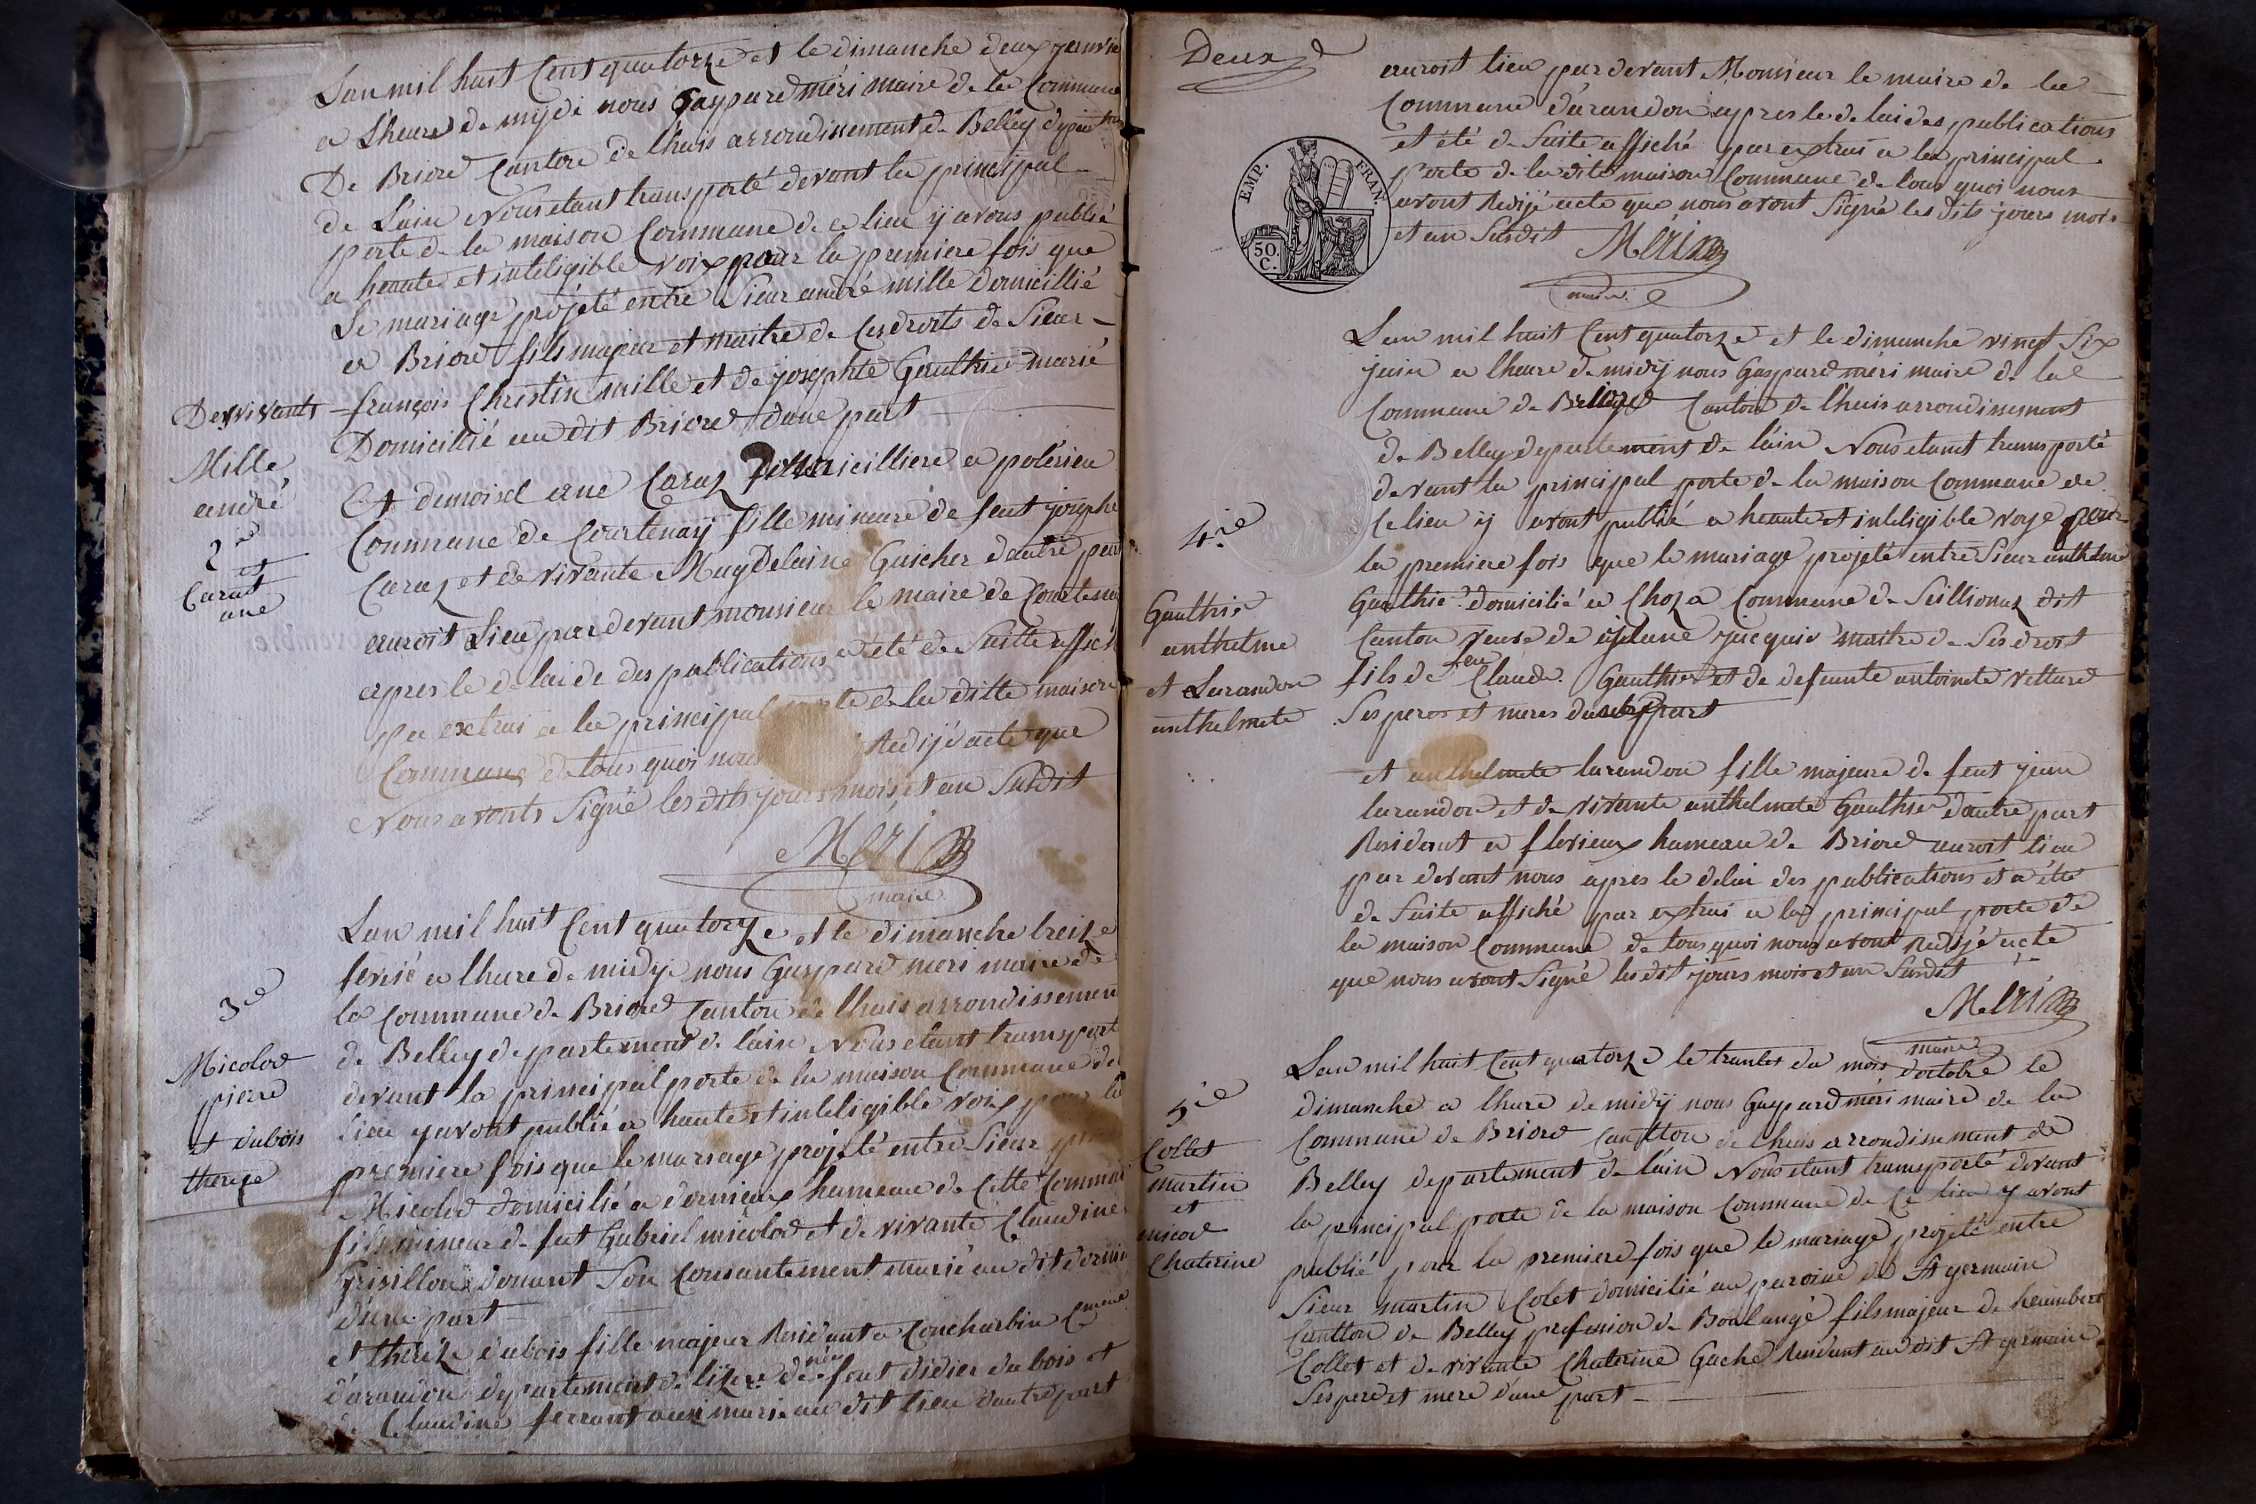 Lan mil huit Cent quatorze et le dimanche deux janvie
a Lheure de mydi nous Gaspard méri maire de la Commune
De Briord Canton de lhuis arrondissement de Belley
de Lain Nous etant transporté devant la principal
porte de la maison Commune de ce lieu ÿ avons publié
a heaute et inteligible voix pour la premiere fois que
Le mariage projeté entre Sieur andré mille Domicillié
a Briord fils majeur et maitre de Ces droits de Sieur
De vivants françois Christin mille et de josephte Gauthier marié
Domicillié au dit Briord dune part
Mille
andré
2e
et
Carat
ane
Et demoisel ane Caraz a polerieu
Commune de Courtenaÿ fille mineure de feut josephe
Caraz et de vivante Magdelaine Guicher dautre part
auroit Lieu par devant monsieur le maire de Courtenay
apres le delai de des publications a été de Suitte affich
par extrai a la principal porte de la ditte maison
Commune de tous quoi nous Redijé acte que
Nous avonts Signé les dits jours mois et an Susdit
Meri
maire
3e
Micolod
pierre
et dubois
thereze
Lan mil huit Cent quatorze et le dimanche treize
fevrié a lhure de midÿ nous Gaspard meri maire de
la Commune de Briord Canton de lhuis arrondissemen
de Belley departement de lain Nous etant transport
devant la principal porte de la maison Commune de
Lieu y avont publié a haute et inteligible voix pour la
premiere fois que le mariage projeté entre Sieur
Micolod domicilié a dornieux hameau de Cette Commun
fils mineur de feut Gabriel micolod et de vivante Claudine
Grisillon donant Son Consantement marié au dit dornieu
dune part
et theréze dubois fille majeur Residant a Concharbin
darandon departement de lizere de feut didier dubois et
de Claudine ferrant aussi marié au dit lieu dautre part
Deux
auroit lieu par devant Monsieur le maire de la
Commune darandon apres le delai des publications
et été de Suite affiché par extrai a la principal
porte de la dite maison Commune de tous quoi nous
avont Redijé acte que nous avont Signé les dits jours mois
et an Susdit Meri
maire
EMP. FRAN.
50
C.
Lan mil huit Cent quatorze et le dimanche vingt Six
juin a lheure de midÿ nous Gaspard méri maire de la
Commune de Briord Canton de lhuis arrondissement
de Belley departement de lain Nous etant transporté
devant la principal porte de la maison Commune de
Ce lieu ÿ avont publié a heaute et inteligible voye pour
la premiere fois que le mariage projeté entre Sieur anthelme
4e
Gauthie
anthelme
et Larandon
anthelmete
Gauthie domicilié a Choza Commune de Seillionaz dit
Canton veuve de jacquié maitre de Ses droit
fils de feu Claude Gauthier et de defeunte antoinete vettard
Ses peres et meres dune part
et anthelmete larandon fille majeure de feut jean
larandon et de vivante anthelmete Gauthie dautre part
Residant a flevieux hameau de Briord auroit lieu
par devant nous apres le delai des publications et a été
de Suite affiché par extrai a la principal porte de
la maison Commune de tous quoi nous avont Redijé acte
que nous avont Signé les dit jours mois et an Susdit
Meri
maire
5e
Collet
martin
et
micod
Chaterine
Lan mil huit Cent quatorze le trantes du mois doctobre le
dimanche a lhure de midÿ nous Gaspard méri maire de la
Commune de Briord Cantton de lhuis arrondissement de
Belley departement de lain Nous etant transporté devant
la principal porte de la maison Commune de Ce lieu y avont
publié pour la premiere fois que le mariage projeté entre
Sieur martin Colet domicilié au paroise de St germain
Cantton de Belley profession de Boulangé fils majeur de heumbert
Collet et de vivante Chaterine Gache Residant au dit St germain
Ses pere et mere dune part